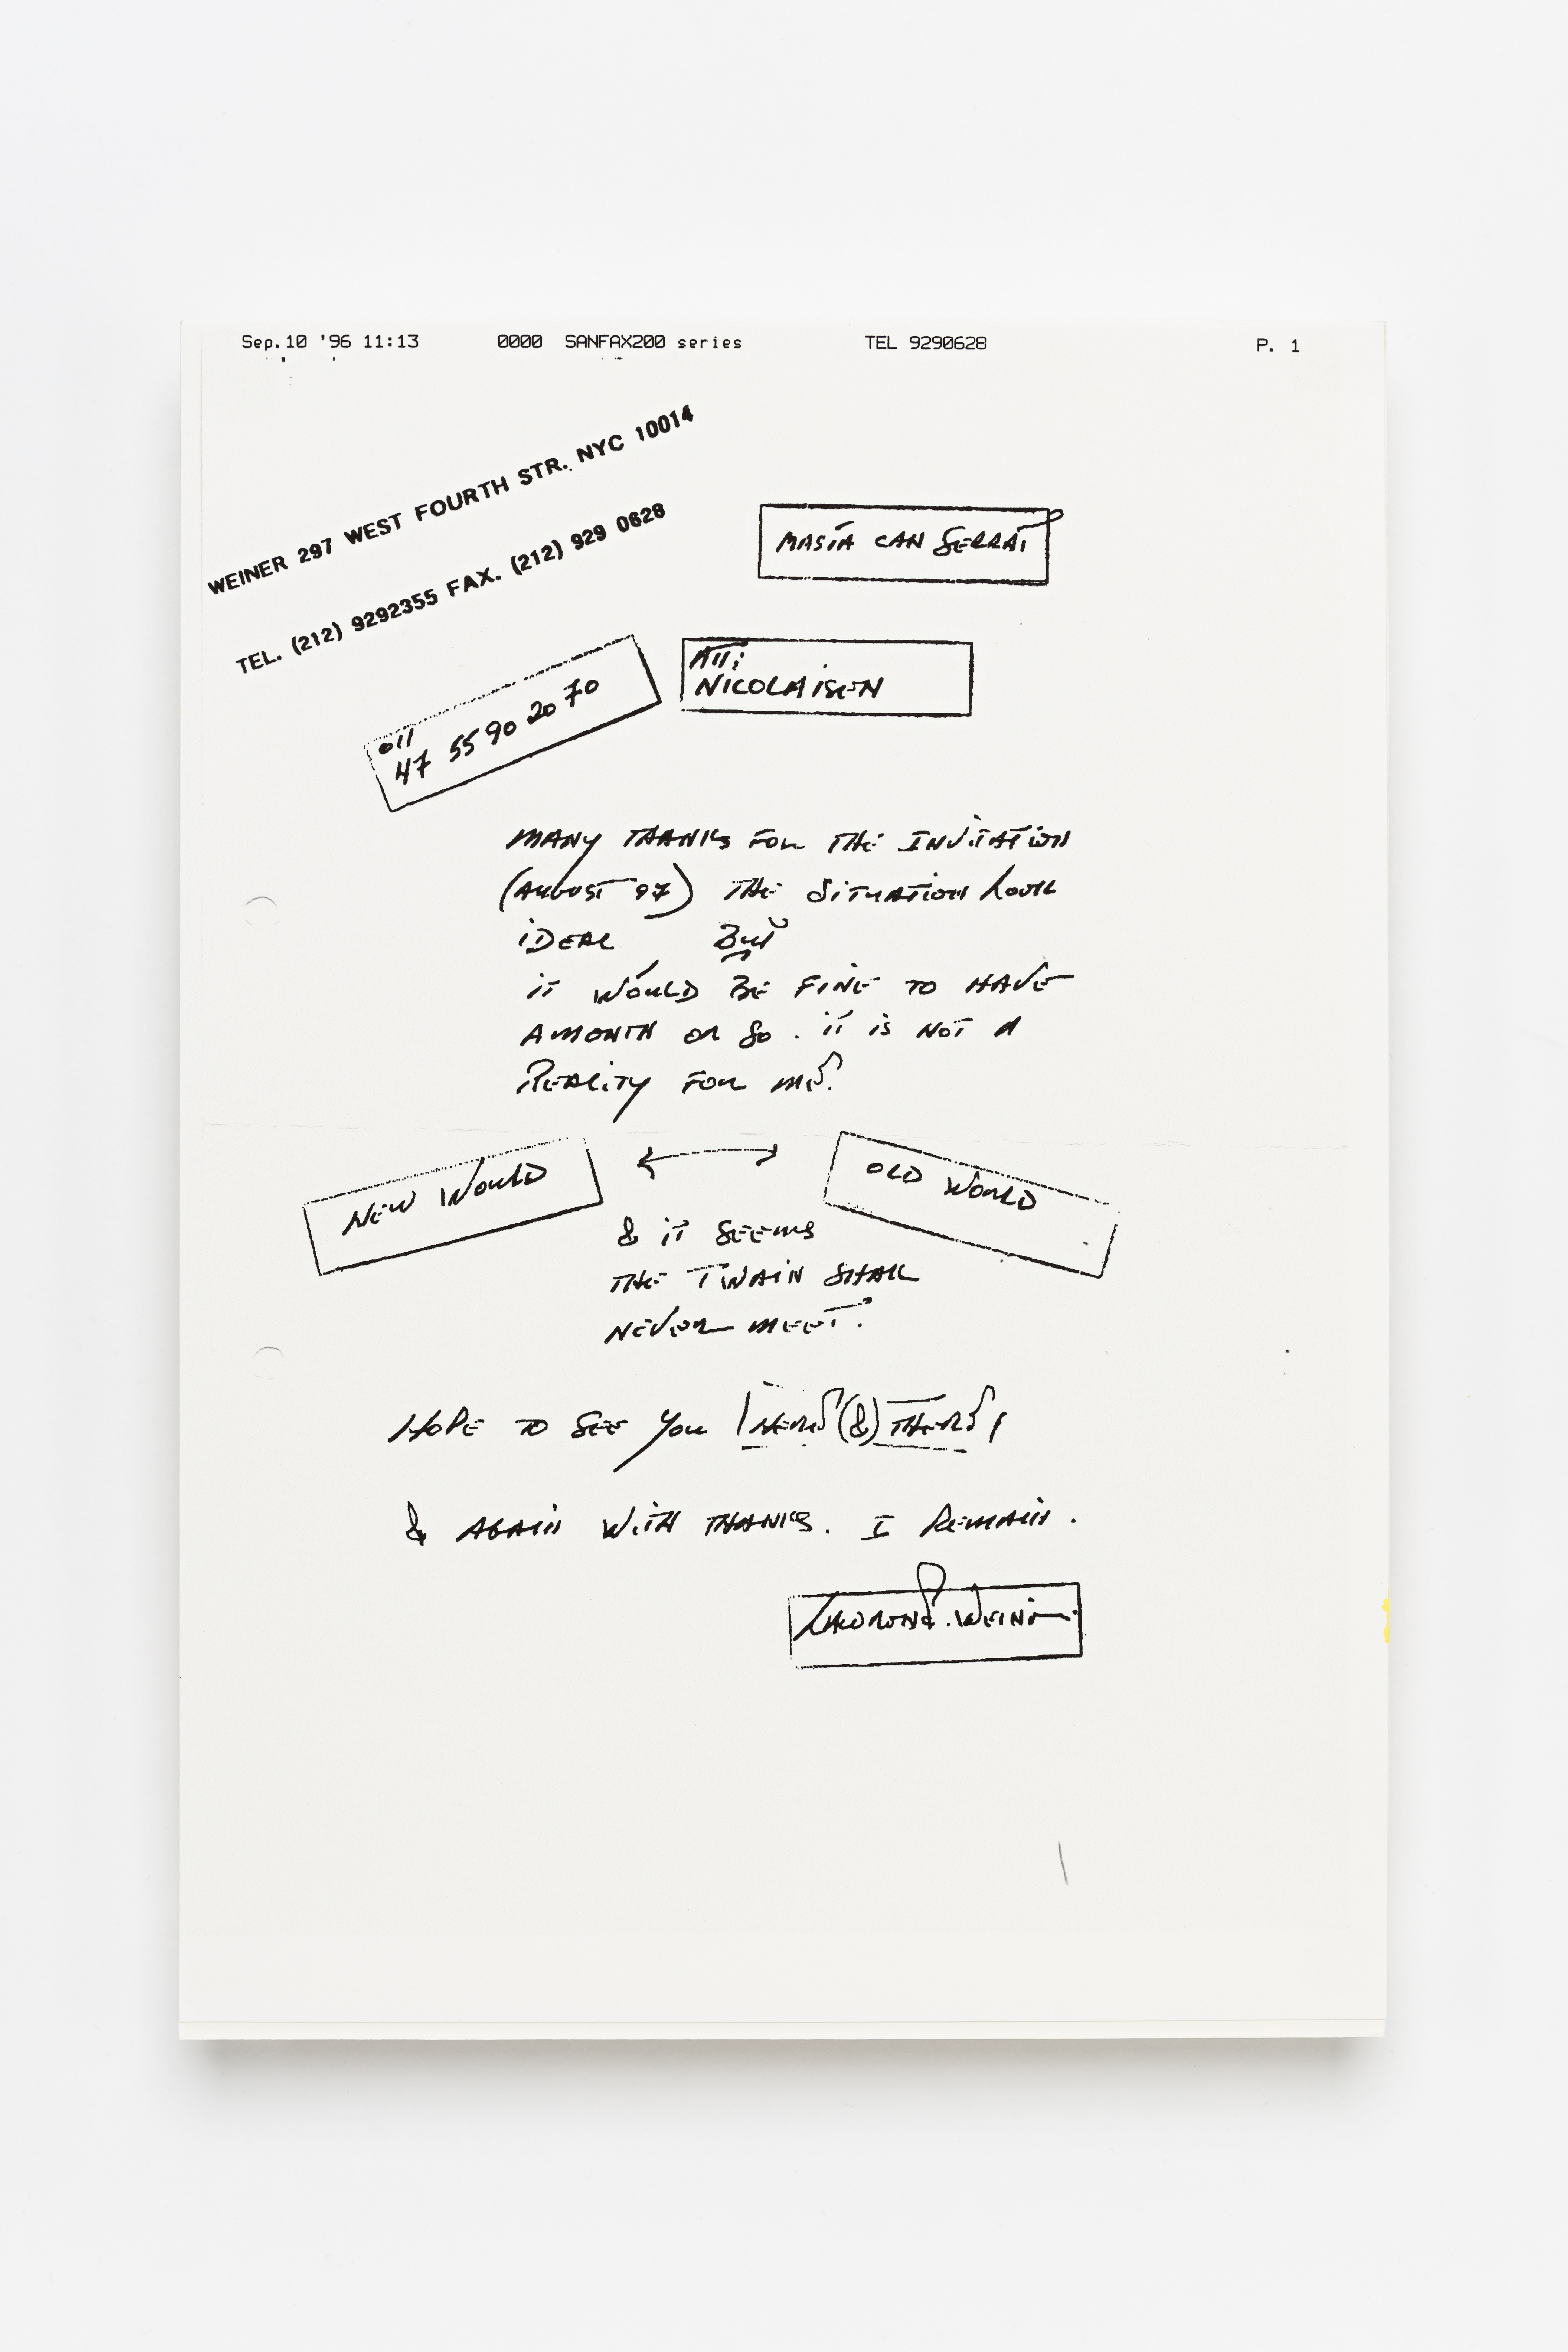 Sep.10 '96 11:13 0000 SANFAX200 series TEL 9290628 P. 1
WEINER 297 WEST FOURTH STR. NYC 10014
TEL. (212) 9292355 FAX. (212) 929 0628
MASÍA CAN SERRAT
011
47 55 90 20 70
ATT:
NICOLAISEN
MANY THANKS FOR THE INVITATION
(AUGUST 97) THE SITUATION LOOKS
IDEAL BUT
IT WOULD BE FINE TO HAVE
A MONTH OR SO. IT IS NOT A
REALITY FOR ME.
NEW WORLD ↔ OLD WORLD
& IT SEEMS
THE TWAIN SHALL
NEVER MEET.
HOPE TO SEE YOU HERE (&) THERE
& AGAIN WITH THANKS. I REMAIN.
LAWRENCE WEINER